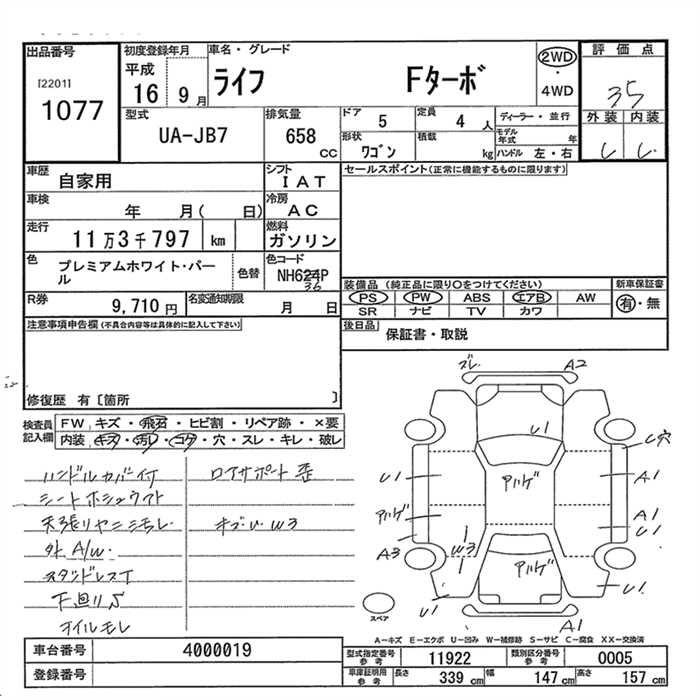 出品番号
[2201]
1077
初度登録年月
平成
16 9月
車名・グレード
ライフ Fターボ
2WD
・
4WD
評価点
35
外装 内装
型式
UA-JB7
排気量
658
CC
ドア 5
定員 4 人
ディーラー・並行
形状
ワゴン
積載
kg
モデル
年式 年
ハンドル 左・右
車歴
自家用
シフト
IAT
セールスポイント(正常に機能するものに限ります)
車検
年 月( 日)
冷房
AC
走行
11万3千797 km
燃料
ガソリン
色
プレミアムホワイト・パー
ル
色替
色コード
NH624P
36
装備品 (純正品に限り○をつけてください)
新車保証書
PS PW ABS エアB AW
有・無
SR ナビ TV カワ
R券
9,710 円
名変通知期限
月 日
後日品
保証書・取説
注意事項申告欄(不具合内容等は具体的に記入して下さい)
修復歴 有〔箇所 〕
検査員
記入欄
FW キズ・飛石・ヒビ割・リペア跡・×要
内装 キズ・汚レ・コゲ・穴・スレ・キレ・破レ
ハンドルカバー付
ロアサポート歪
天張リヤニシモレ
キズ・U W3
外 A/W.
スタッドレスT
下廻りS
オイルモレ
ズレ
A2
U1
U穴
U1
アルゲ
A1
アルゲ
A1
U1
A3
W3
アルゲ
U1
U1
A1
スペア
A−キズ E−エクボ U−凹み W−補修跡 S−サビ C−腐食 XX−交換済
車台番号
4000019
登録番号
型式指定番号
参考
11922
類別区分番号
参考
0005
車庫証明用
参考
長さ 339 cm
幅 147 cm
高さ 157 cm